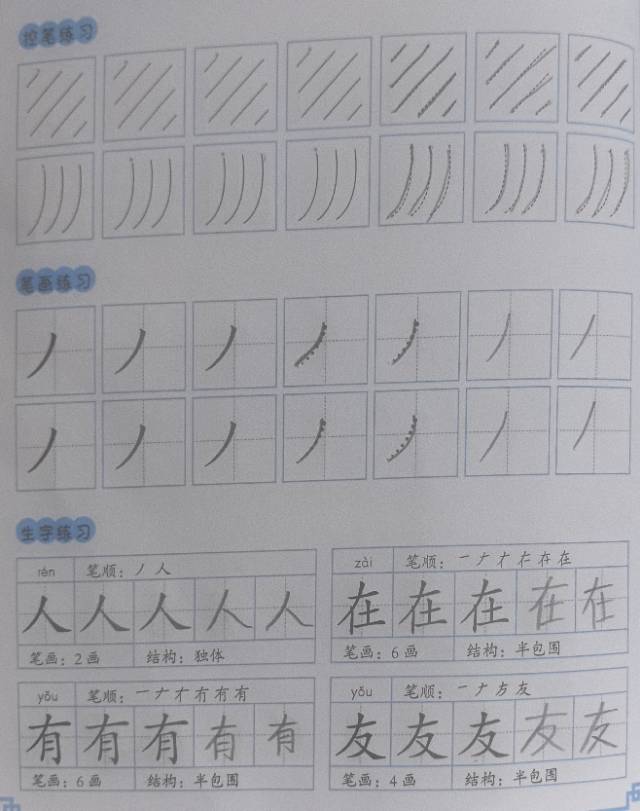 控笔练习
笔画练习
丿 丿 丿 丿 丿 丿 丿
丿 丿 丿 丿 丿 丿 丿
生字练习
rén 笔顺：丿 人
人 人 人 人 人
笔画：2画 结构：独体
zài 笔顺：一 ナ 才 在 在
在 在 在 在 在
笔画：6画 结构：半包围
yǒu 笔顺：一 ナ 才 冇 有 有
有 有 有 有 有
笔画：6画 结构：半包围
yǒu 笔顺：一 ナ 方 友
友 友 友 友 友
笔画：4画 结构：半包围